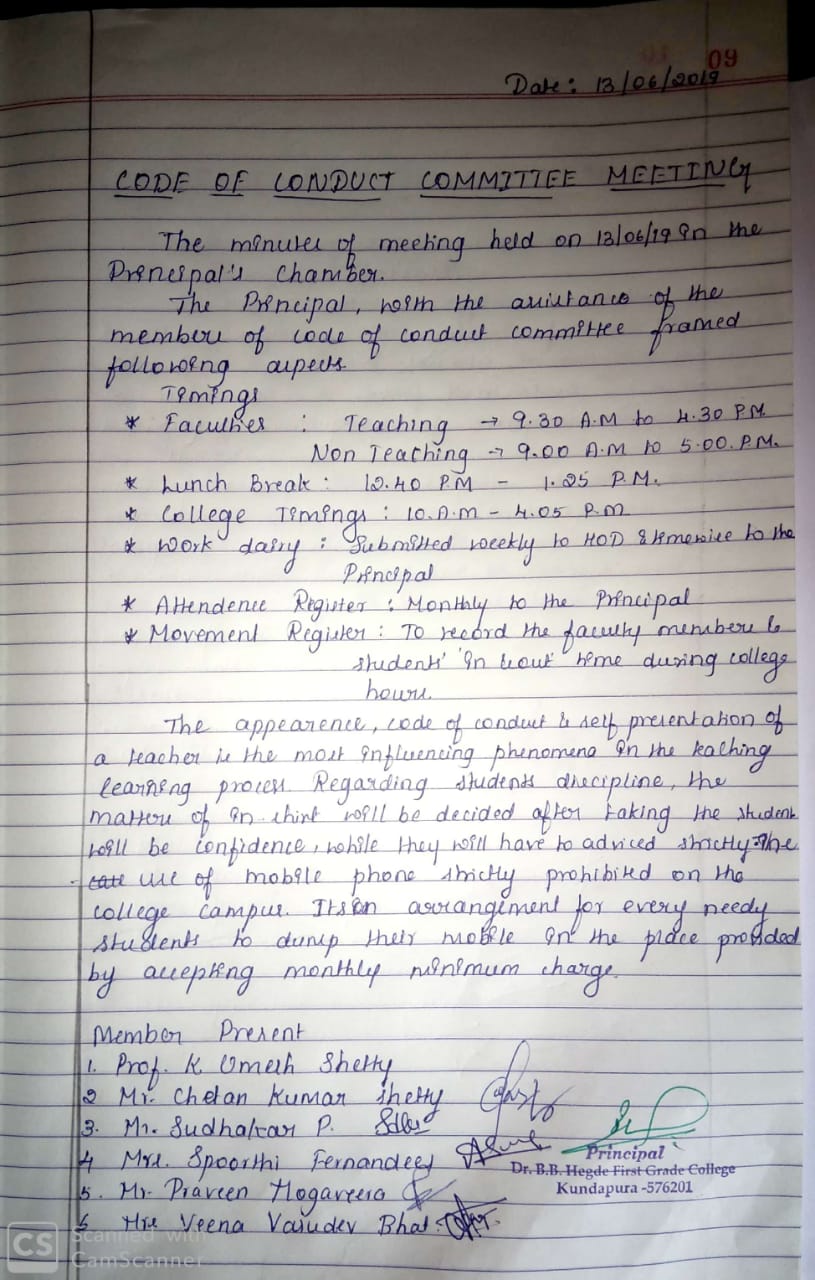 09
Date: 13/06/2019
CODE OF CONDUCT COMMITTEE MEETING
The minutes of meeting held on 13/06/19 in the
Principal's Chamber.
The Principal, with the assistance of the
members of code of conduct committee framed
following aspects.
Timings
* Faculties : Teaching → 9.30 A.M to 4.30 P.M.
Non Teaching → 9.00 A.M to 5.00. P.M.
* Lunch Break : 12.40 P.M - 1.25 P.M.
* College Timings : 10.A.M - 4.05 P.M
* Work dairy : Submitted weekly to HOD & timewise to the
Principal
* Attendence Register : Monthly to the Principal
* Movement Register : To record the faculty members &
students' 'in & out' time during college
hours.
The appearence, code of conduct & self presentation of
a teacher is the most influencing phenomena in the teaching
learning process. Regarding students discipline, the
matters of in. shirt will be decided after taking the student
will be confidence, while they will have to adviced strictly. The
use of mobile phone strictly prohibited on the
college campus. Its an arrangement for every needy
students to dump their mobile in the place provided
by accepting monthly minimum charge.
Member Present
1. Prof. K Umesh Shetty
2 Mr. Chetan Kumar Shetty
3. Mr. Sudhakar P.
4 Mrs. Spoorthi Fernandees
5. Mr. Praveen Mogaveera
6 Mrs Veena Vasudev Bhat
Principal
Dr. B.B. Hegde First Grade College
Kundapura -576201
CS Scanned with
CamScanner